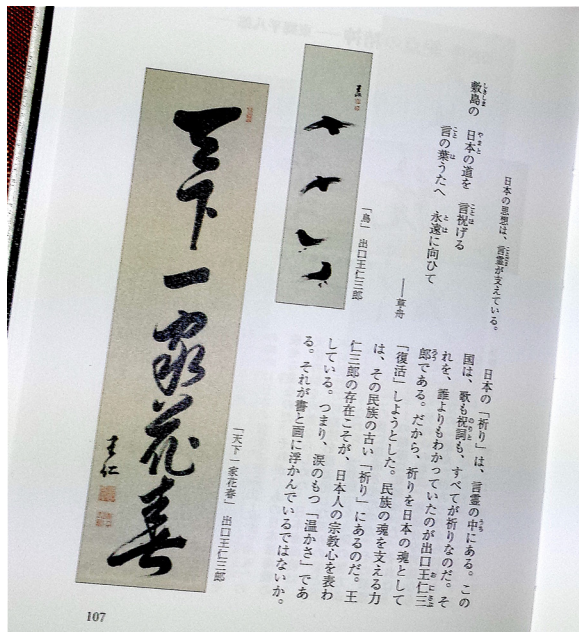 日本の思想は、言霊が支えている。
敷島の　日本の道を　言祝げる
言の葉うたへ　永遠に向ひて
――草舟
「鳥」　出口王仁三郎
日本の「祈り」は、言霊の中にある。この
国は、歌も祝詞も、すべてが祈りなのだ。そ
れを、誰よりもわかっていたのが出口王仁三
郎である。だから、祈りを日本の魂として
「復活」しようとした。民族の魂を支える力
は、その民族の古い「祈り」にあるのだ。王
仁三郎の存在こそが、日本人の宗教心を表わ
している。つまり、涙のもつ「温かさ」であ
る。それが書と画に浮かんでいるではないか。
天下一家花春
王仁
「天下一家花春」　出口王仁三郎
107